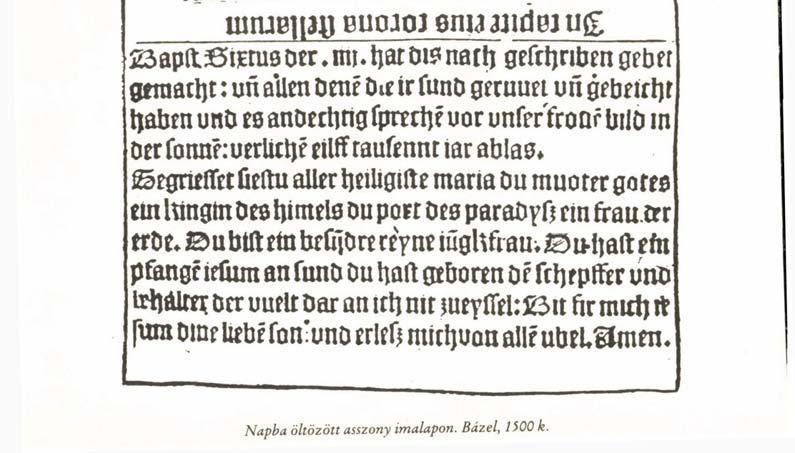 In capite eius corona stellarum
Bapst Sixtus der .iiij. hat dis nach geschriben gebet
gemacht: uñ allen denē die ir sund geruuet uñ gebeicht
haben und es andechtig sprechē vor unser frouē bild in
der sonnē: verlichē eilff tausennt iar ablas.
Gegriesset siestu aller heiligiste maria du muoter gotes
ein kingin des himels du port des paradysz ein frau der
erde. Du bist ein besūdre reyne iūgkfrau. Du hast ein
pfangē iesum an sund du hast geboren dē schepffer und
irhalter der vuelt dar an ich nit zueyffel: Bit fir mich ie
sum dine liebē son: und erlesz mich von allē ubel. Amen.
Napba öltözött asszony imalapon. Bázel, 1500 k.